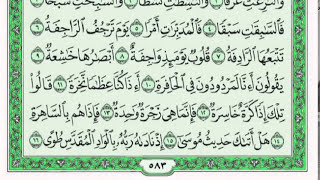 وَٱلنَّـٰزِعَـٰتِ غَرْقًا ١ وَٱلنَّـٰشِطَـٰتِ نَشْطًا ٢ وَٱلسَّـٰبِحَـٰتِ سَبْحًا ٣
فَٱلسَّـٰبِقَـٰتِ سَبْقًا ٤ فَٱلْمُدَبِّرَٰتِ أَمْرًا ٥ يَوْمَ تَرْجُفُ ٱلرَّاجِفَةُ ٦
تَتْبَعُهَا ٱلرَّادِفَةُ ٧ قُلُوبٌ يَوْمَئِذٍ وَاجِفَةٌ ٨ أَبْصَـٰرُهَا خَـٰشِعَةٌ ٩
يَقُولُونَ أَءِنَّا لَمَرْدُودُونَ فِى ٱلْحَافِرَةِ ١٠ أَءِذَا كُنَّا عِظَـٰمًا نَّخِرَةً ١١ قَالُوا۟
تِلْكَ إِذًا كَرَّةٌ خَاسِرَةٌ ١٢ فَإِنَّمَا هِىَ زَجْرَةٌ وَٰحِدَةٌ ١٣ فَإِذَا هُم بِٱلسَّاهِرَةِ
١٤ هَلْ أَتَىٰكَ حَدِيثُ مُوسَىٰٓ ١٥ إِذْ نَادَىٰهُ رَبُّهُۥ بِٱلْوَادِ ٱلْمُقَدَّسِ طُوًى ١٦
٥٨٣